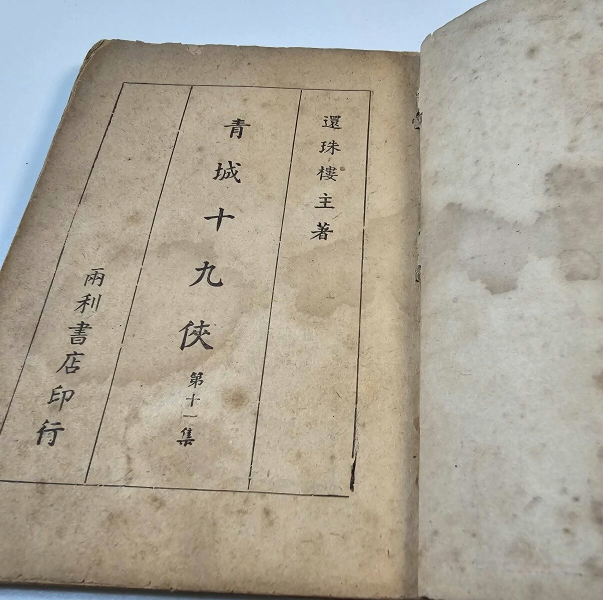 還珠樓主著
青城十九俠
第十一集
兩利書店印行